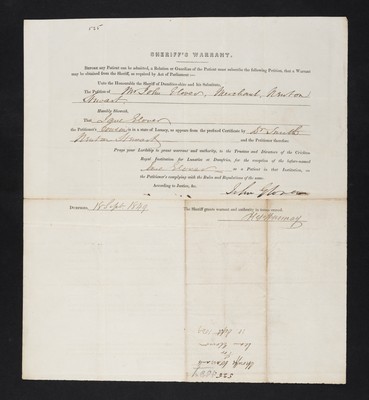 SHERIFF'S WARRANT.
BEFORE any Patient can be admitted, a Relation or Guardian of the Patient must subscribe the following Petition, that a Warrant
may be obtained from the Sheriff, as required by Act of Parliament:—
Unto the Honourable the Sheriff of Dumfries-shire and his Substitutes,
The Petition of Mr John Glover, Merchant, Newton
Stewart
Humbly Sheweth,
That Jane Glover
the Petitioner's Cousin is in a state of Lunacy, as appears from the prefixed Certificate by Dr
Newton Stewart and the Petitioner therefore
Prays your Lordship to grant warrant and authority, to the Trustees and Directors of the Crichton
Royal Institution for Lunatics at Dumfries, for the reception of the before-named
Jane Glover as a Patient in that Institution, on
the Petitioner's complying with the Rules and Regulations of the same.
According to Justice, &c.
John Glover
DUMFRIES, 18 Sept 1849 The Sheriff grants warrant and authority in terms craved.
535
Sheriff's Warrant
Jane Glover
18 Sept 1849